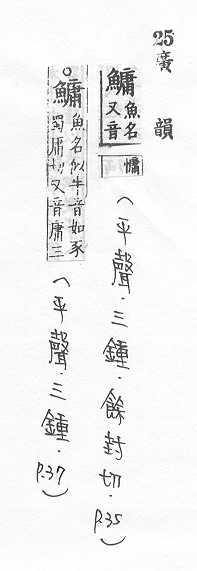 25廣韻
鱅魚名又音慵(平聲.三鍾.餘封切.P.35)
。鱅魚名似牛音如豕蜀庸切又音庸三(平聲.三鍾.P.37)